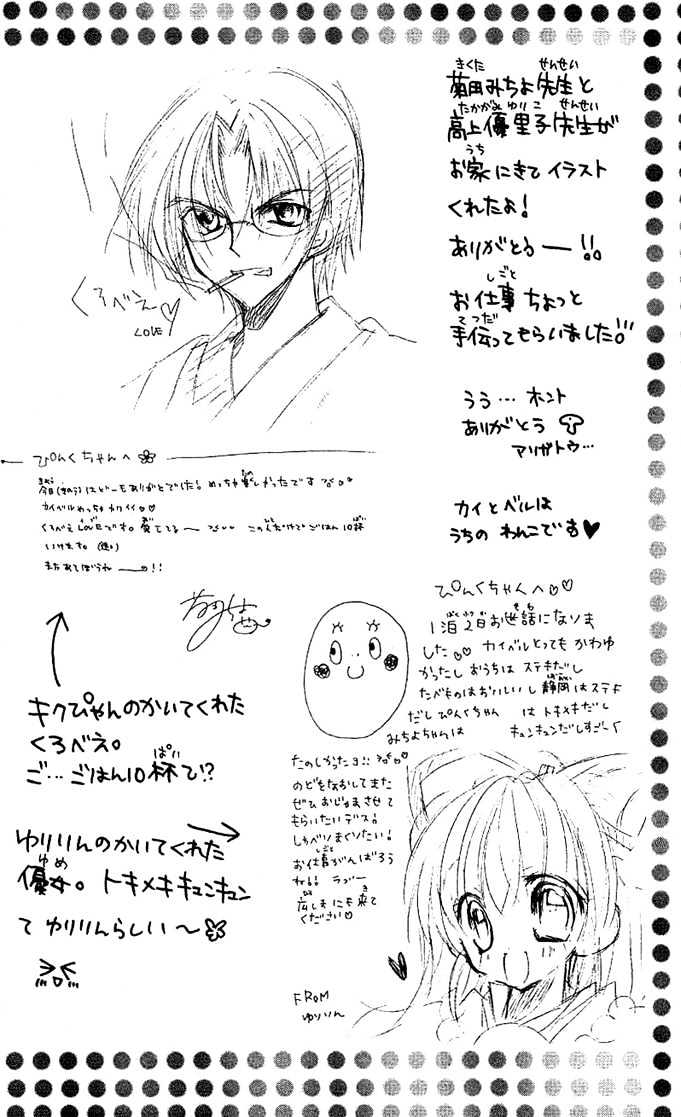 菊田みちよ先生と
高上優里子先生が
お家にきてイラスト
くれたよ!
ありがとうー!!
お仕事ちょっと
手伝ってもらいました!!
うう…ホント
ありがとう
アリガトウ…
カイとベルは
うちのわんこです♥
くろべえ♡
LOVE
ぴんくちゃんへ
今日(きのう)はどーもありがとでした!めっちゃ楽しかったです
カイベルめっちゃカワイイ♡♡
くろべえLOVEですね。愛でてるー
ごはん10杯
いけます。
またあそぼうねー!!
キクぴゃんのかいてくれた
くろべえ。
ご…ごはん10杯で!?
ぴんくちゃんへ♡♡
1泊2日お世話になりま
した♡♡カイベルとってもかわゆ
かったしおうちはステキだし
たべものはおいしいし静岡はステキ
だしぴんくちゃんはトキメキだし
みちよちゃんはキュンキュンだしすごーく
たのしかったヨ!!
のどをなおしてまた
ぜひおじゃまさせて
もらいたいデス!
しゃべりまくりたい!
お仕事がんばろう
ね!!ラブー
広しまにも来て
ください♡
FROM
ゆりりん
ゆりりんのかいてくれた
優女。トキメキキュンキュン
てゆりりんらしい〜